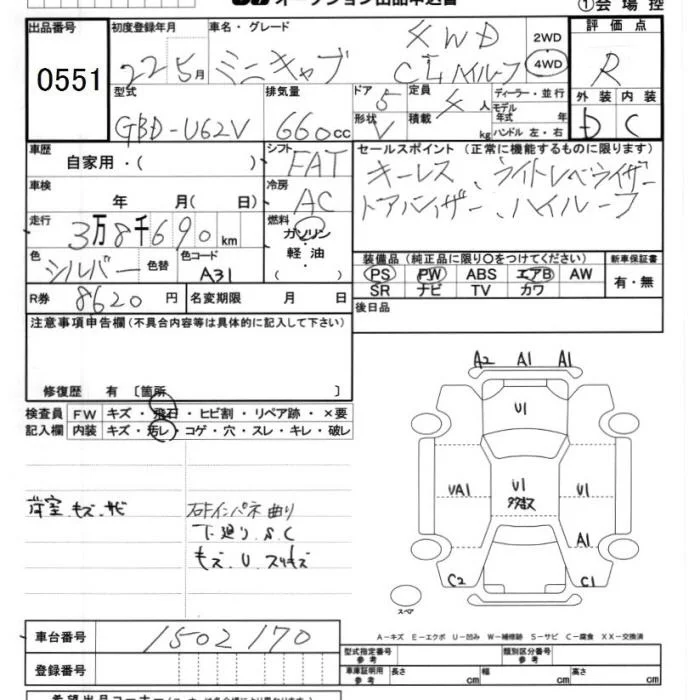 オークション出品申込書
①会場控
出品番号 0551
初度登録年月 22 5月
車名・グレード ミニキャブ 4WD CLハイルーフ
2WD 4WD
評価点 R
外装 D 内装 C
型式 GBD-U62V
排気量 660cc
ドア 5 定員 4人
形状 V 積載 kg
ディーラー・並行
モデル年式 年
ハンドル 左・右
車歴 自家用・( )
シフト FAT
セールスポイント (正常に機能するものに限ります)
キーレス、ライトレベライザー
ドアバイザー、ハイルーフ
車検 年 月( 日)
冷房 AC
走行 3万8千690km
燃料 ガソリン・軽油・( )
色 シルバー 色替 色コード A31
装備品 (純正品に限り○をつけてください)
新車保証書 有・無
PS PW ABS エアB AW
SR ナビ TV カワ
R券 8620円 名変期限 月 日
後日品
注意事項申告欄(不具合内容等は具体的に記入して下さい)
修復歴 有 〔箇所 〕
検査員記入欄
FW キズ・飛石・ヒビ割・リペア跡・×要
内装 キズ・汚レ・コゲ・穴・スレ・キレ・破レ
荷室、キズ、サビ
下廻り、S、C
キズ、U、スリキズ
A2 A1 A1
U1
UA1 U1 U1
A1
C2 C1
スペア
A－キズ E－エクボ U－凹み W－補修跡 S－サビ C－腐食 XX－交換済
車台番号 1502170
登録番号
型式指定番号 参考 類別区分番号 参考
車庫証明用 参考 長さ cm 幅 cm 高さ cm
希望出品コーナー